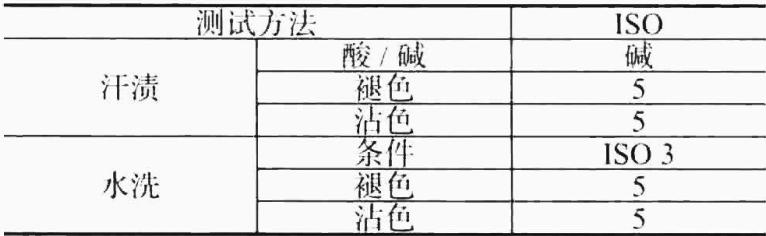 测试方法 ISO
汗渍 酸/碱 碱
褪色 5
沾色 5
水洗 条件 ISO 3
褪色 5
沾色 5